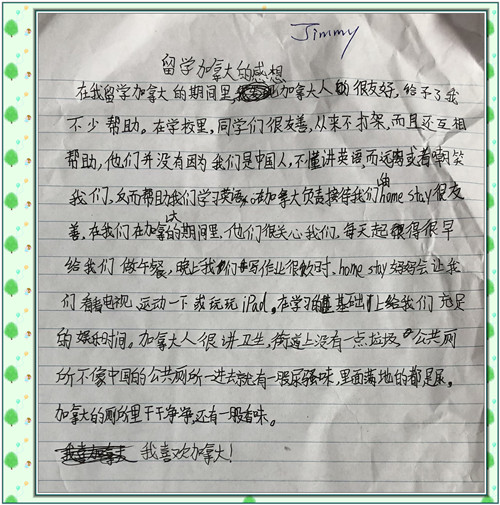 Jimmy
留学加拿大的感想
在我留学加拿大的期间里,加拿大人很友好,给了我
不少帮助。在学校里,同学们很友善,从来不打架,而且还互相
帮助,他们并没有因为我们是中国人,不懂讲英语,而远离或者嘲笑
我们,反而帮助我们学习英语。在加拿大负责接待我们的home stay很友
善,在我们在加拿大的期间里,他们很关心我们,每天起得很早
给我们做午餐,晚上我们写作业很快时,home stay妈妈会让我
们看看电视、运动一下或玩玩iPad。在学习的基础上给我们充足
的娱乐时间。加拿大人很讲卫生,街道上没有一点垃圾。公共厕
所不像中国的公共厕所一进去就有一股尿骚味,里面满地的都是尿。
加拿大的厕所里干干净净,还有一股香味。
我喜欢加拿大!